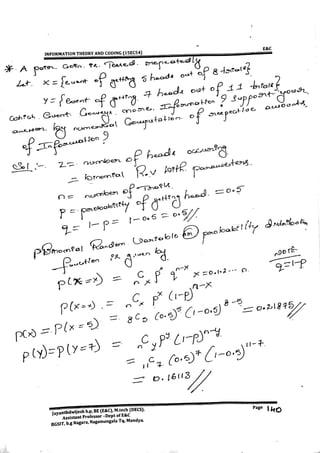 E&C
INFORMATION THEORY AND CODING (15EC54)
* A fair Coin is Tossed repeatedly
Let. X = {Event of getting 5 heads out of 8 trials}
Y = {Event of getting 7 heads out of 11 trials}
Which Event Conveys more Information? Support your
answer by numerical Computation of respective amounts
of Information?
Sol:- Z = number of heads occurring
= binomial R.V with parameters.
n = number of
p = probability of getting head = 0.5
q = 1-p = 1-0.5 = 0.5//
Binomial Random Variable probability
function is given by
p(X=x) = nCx p^x q^n-x x=0,1,2... n.
NOTE
q=1-p
p(X=x) = nCx p^x (1-p)^n-x
P(X) = P(x=5) = 8C5 (0.5)^5 (1-0.5)^8-5 = 0.21875//
P(Y)=P(y=7) = nCy p^y (1-p)^n-y
= 11C7 (0.5)^7 (1-0.5)^11-7
= 0.16113//
Jayanthdwijesh h.p, BE (E&C), M.tech (DECS).
Assistant Professor - Dept of E&C
BGSIT, b.g Nagara, Nagamangala Tq, Mandya.
Page 140